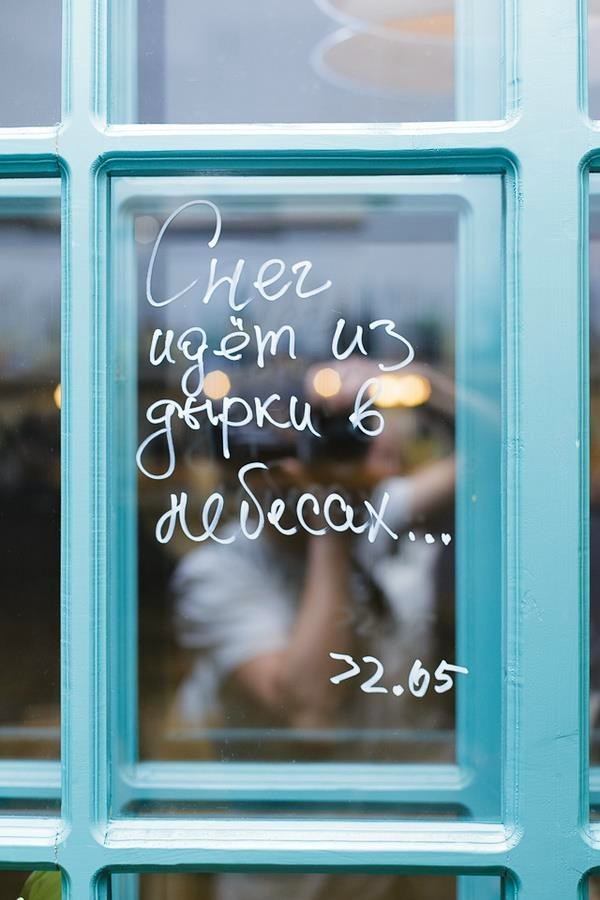 Снег
идёт из
дырки в
небесах...
>2.05